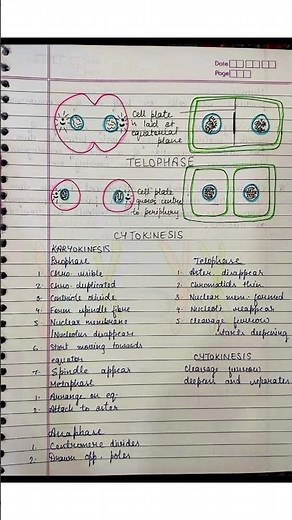 Date
Page
Cell plate
is laid at
equatorial
plane
TELOPHASE
Cell plate
grows centre
to periphery
CYTOKINESIS
KARYOKINESIS
Prophase
1. Chro. visible
2. Chro. duplicated
3. Centriole divide
4. Form spindle fibre
5. Nuclear membrane
/Nucleolus disappear
6. Start moving towards
equator
7. Spindle appear
Metaphase
1. Arrange on eq.
2. Attach to aster
Anaphase
1. Centromere divides
2. Drawn opp. poles
Telophase
1. Aster. disappear
2. Chromatids thin
3. Nuclear mem. formed
4. Nucleoli reappear
5. Cleavage furrow
starts deepening
CYTOKINESIS
Cleavage furrow
deepens and separates